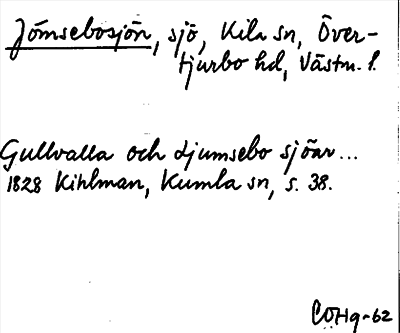 Jömsebosjön, sjö, Kila sn, Över-
tjurbo hd, Västm. l.
Gullvalla och Ljumsebo sjöar...
1828 Kihlman, Kumla sn, s. 38.
COHq-62